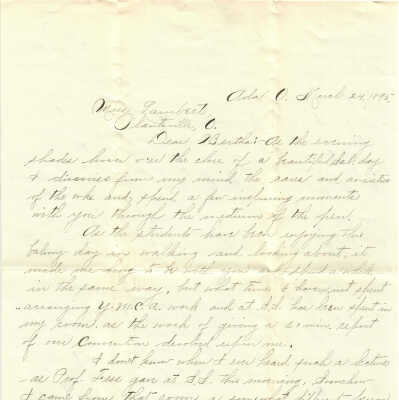 Ada O. March 24, 1895
Miss Lambert,
Plantsville, O.
Dear Bertha:- As the evening
shades hover over the close of a beautiful Sab. day
I dismiss from my mind the cares and anxieties
of the wk. and spend a few inspiring moments
with you through the medium of the pen.
As the students have been enjoying this
balmy day in walking and looking about, it
made me long to be with you and spend a while
in the same way, but what time I have not spent
arranging Y.M.C.A. work and at S.S. has been spent in
my room as the work of giving a review report
of our Convention devolved upon me.
I don't know when I ever heard such a lecture
as Prof. Fess gave at S.S. this morning. Somehow
I came from that room a somewhat different